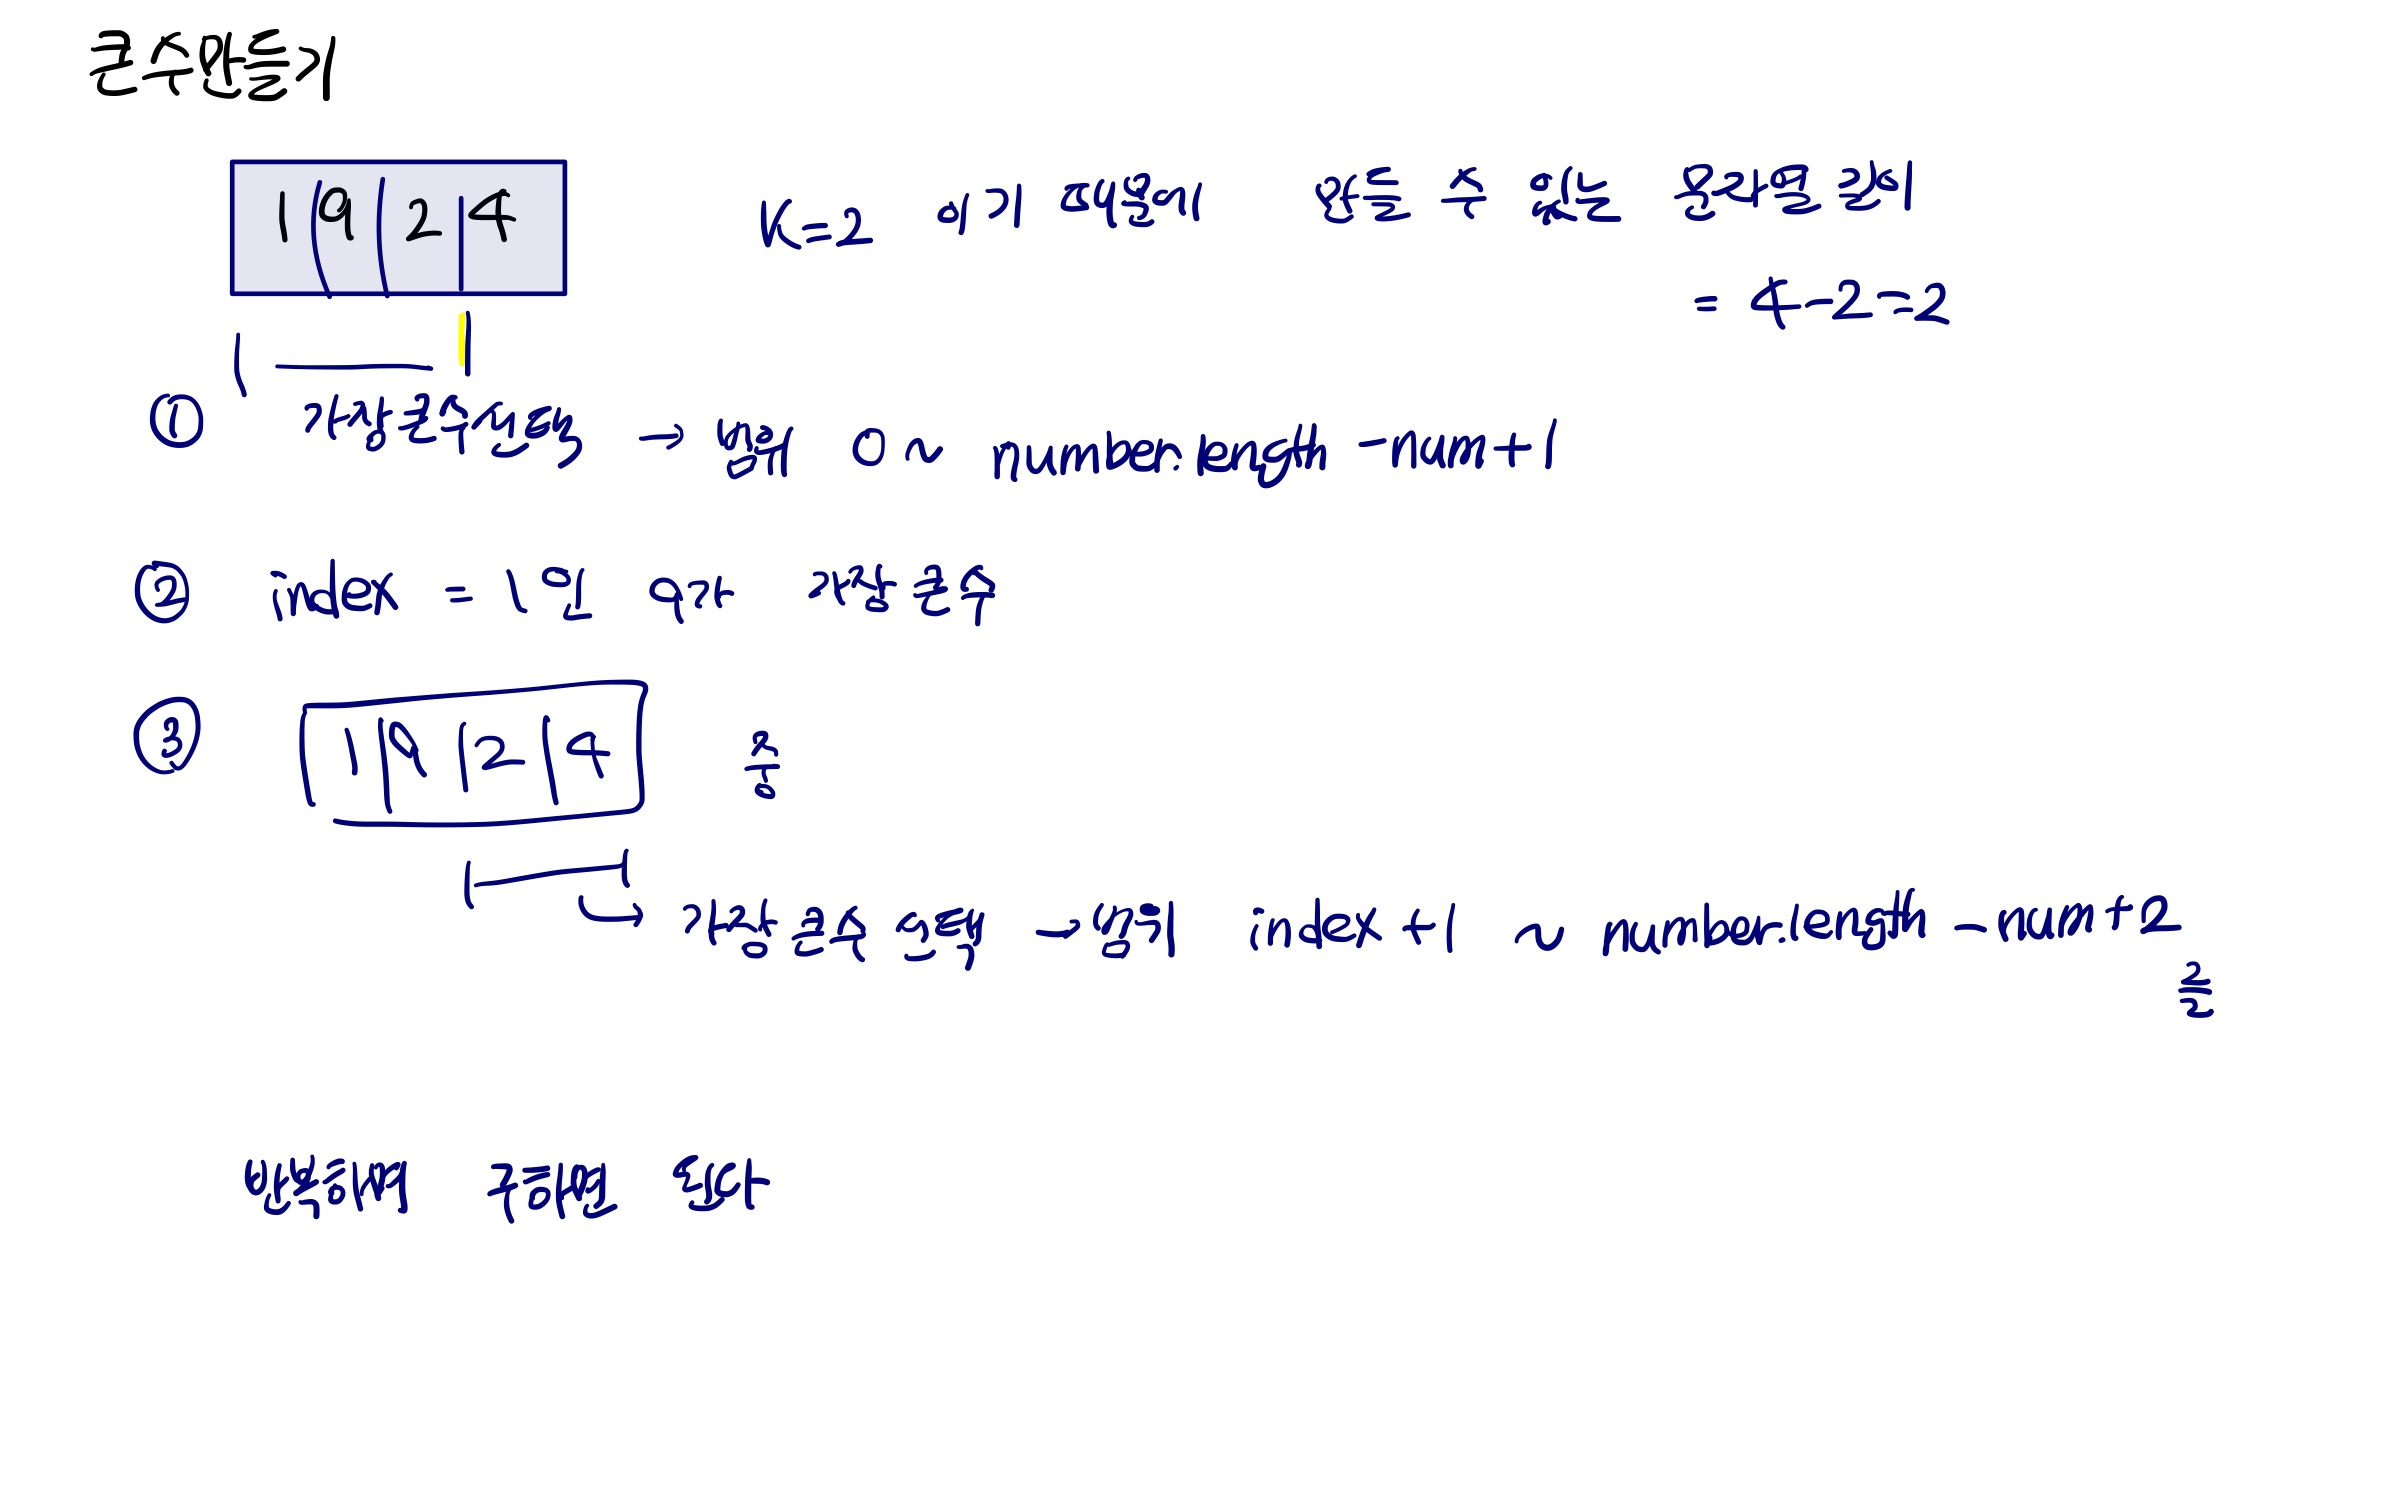 큰수만들기
1 9 2 4
K=2 이기 때문에 만들 수 있는 문자열 길이
= 4-2=2
① 가장큰수선택 → 범위 0 ~ number.length -num+1
② index = 1인 9가 가장큰수
③ 1 9 2 4 중
가장 큰수 선택 → 범위 index +1 ~ number.length - num + 2
글글
반복해서 구하면 된다